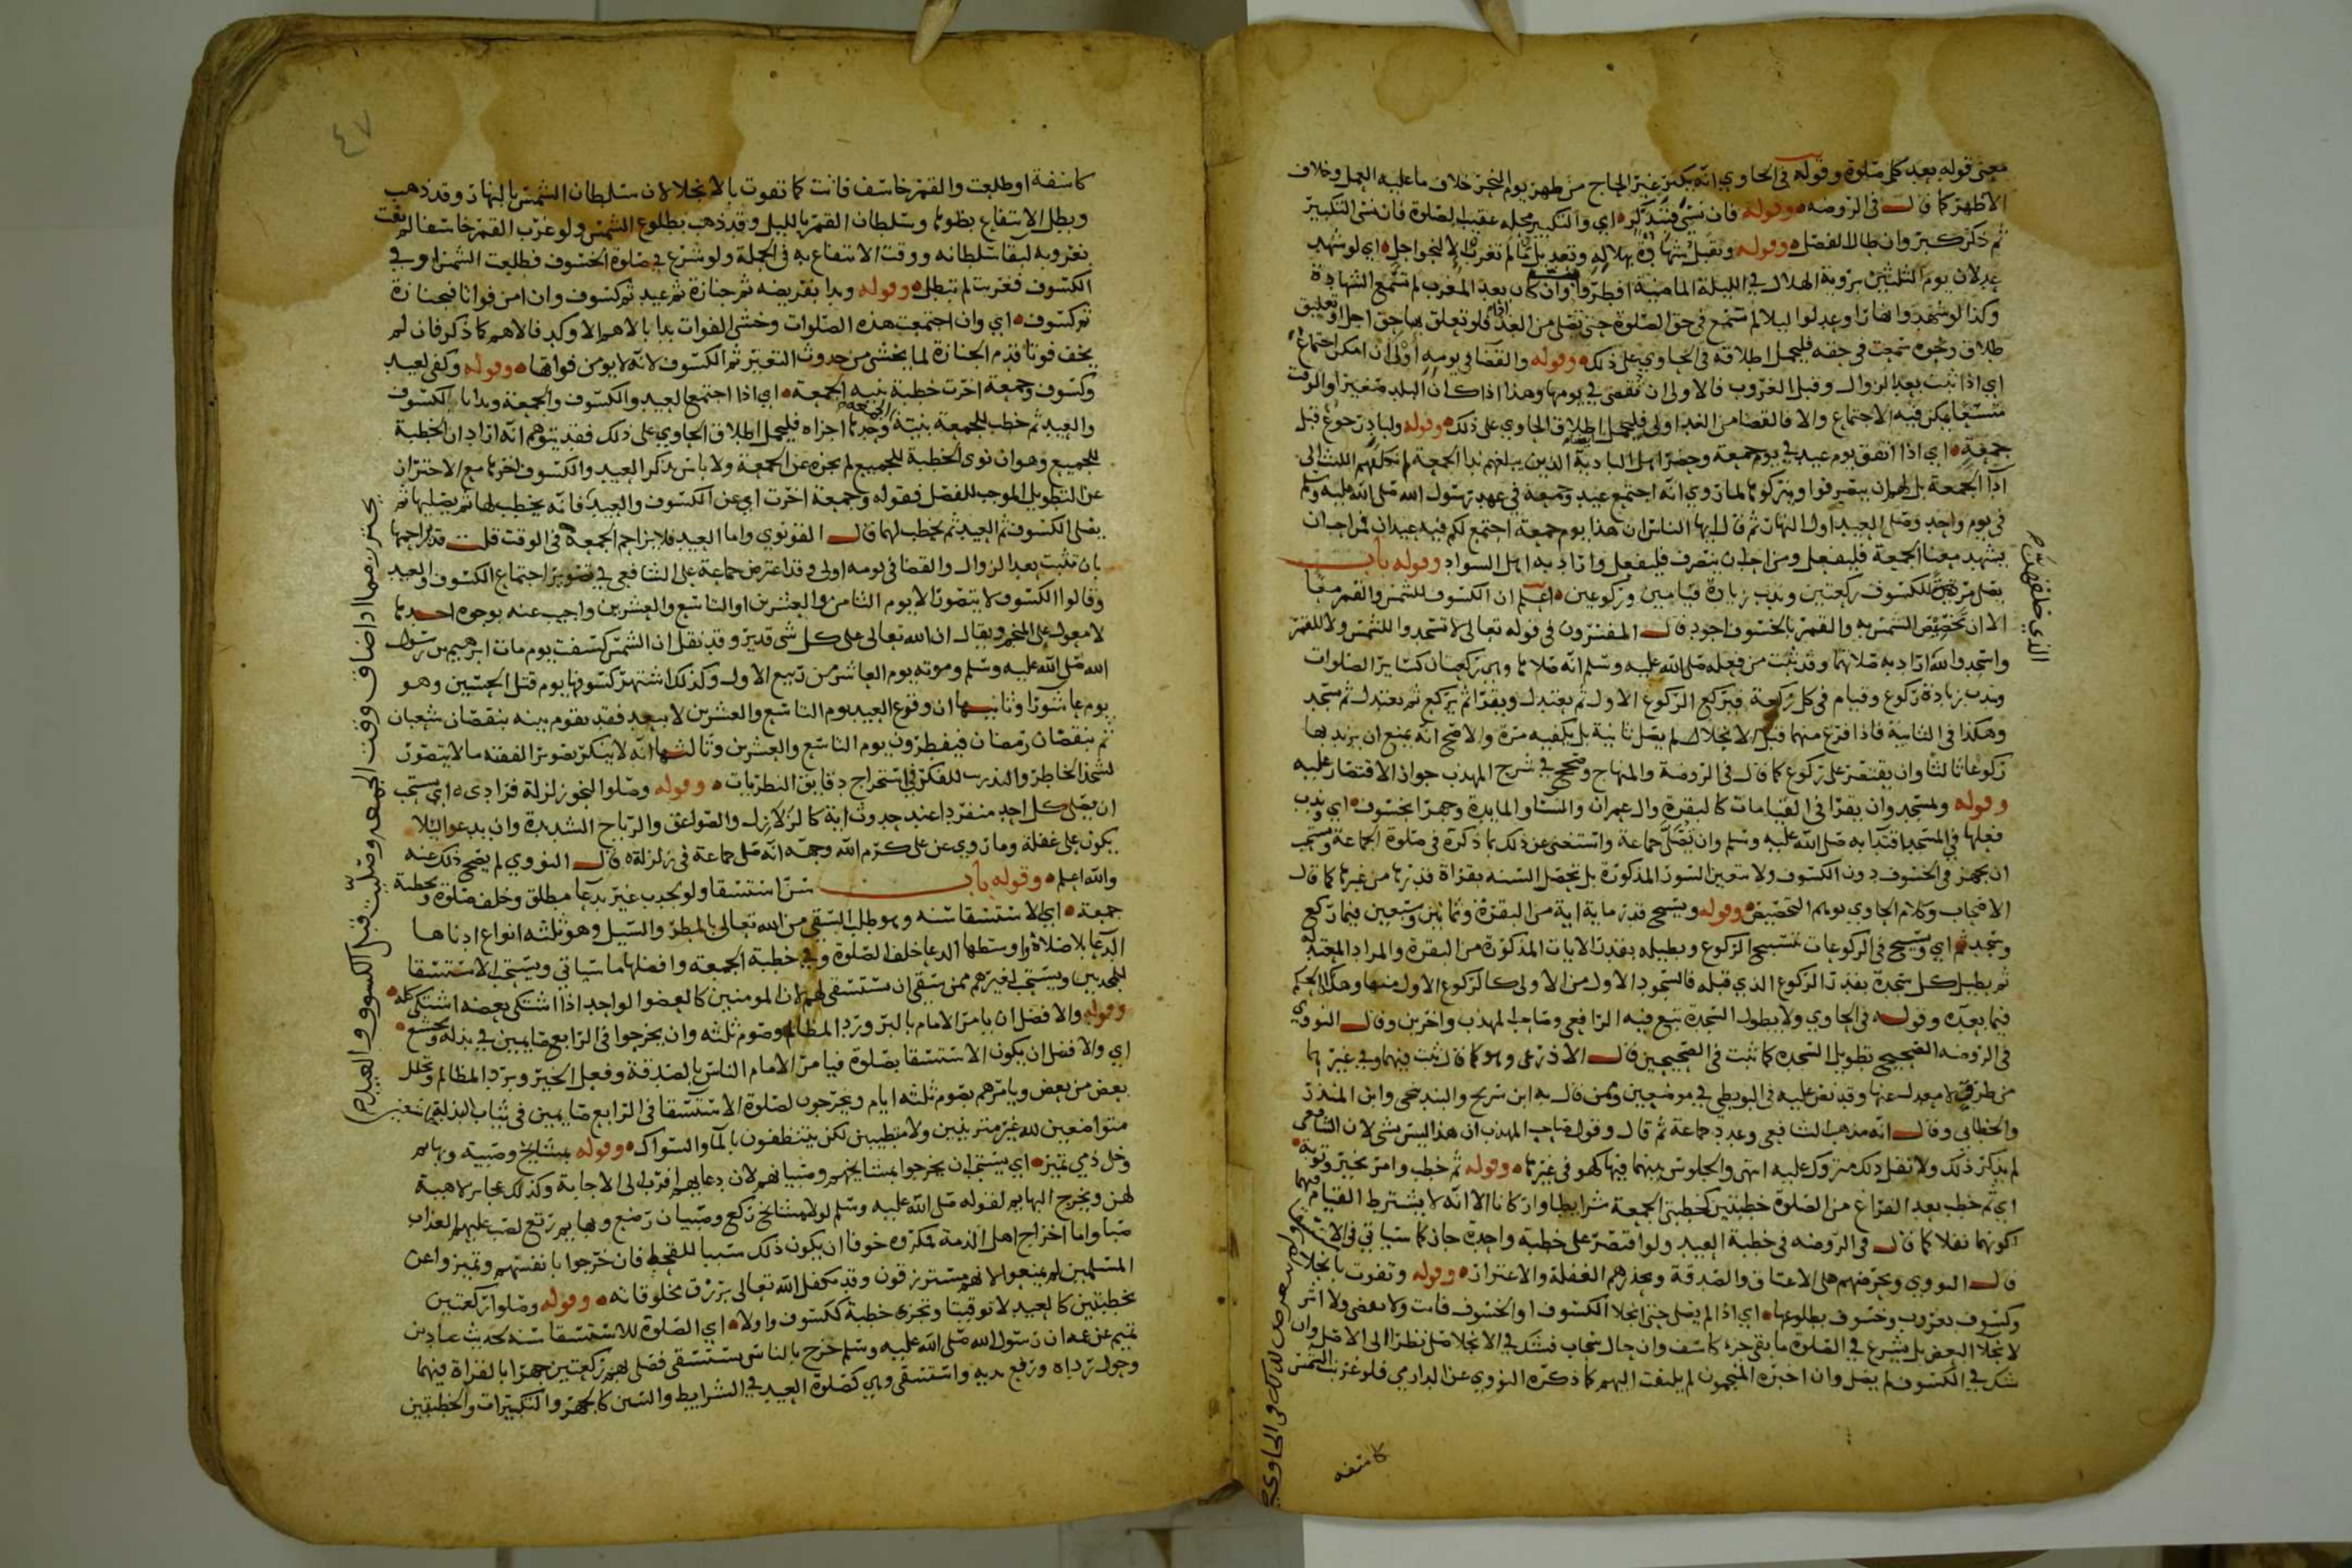 معنى قوله بعد كل صلوة وقوله في الحاوي انه يكبر غير الحاج من ظهر يوم النحر خلاف ما عليه العمل وخلاف
الاظهر كما قال في الروضه وقوله فان نسي فتذكر اي والتكبير محله عقيب الصلوة فان نسي التكبير
ثم ذكر كبر وان طال الفصل وقوله وتقبل شهادة بهلاله وتعديل ما لم تغرب لا لنحو اجل اي لو شهد
عدلان يوم الثلثين برؤية الهلال في الليلة الماضية افطروا وان كان بعد المغرب لم تسمع الشهادة
وكذا لو شهدوا نهارا وعدلوا ليلا لم تسمع في حق الصلوة حتى تصلى من الغد اداء فلو تعلق بها حق اجل او تعليق
طلاق ونحوه سمعت في حقه فليحمل اطلاقه في الحاوي على ذلك وقوله والقضا في يومه اولى ان امكن اجتماع
اي اذا ثبت بعد الزوال وقبل الغروب فالاولى ان تقضى في يومها وهذا اذا كان البلد صغيرا والوقت
متسعا يمكن فيه الاجتماع والا فالقضا من الغد اولى فليحمل اطلاق الحاوي على ذلك وقوله ولباد رجوع قبل
جمعة اي اذا اتفق يوم عيد في يوم جمعة وحضر اهل البادية الذين يبلغهم ندا الجمعة لم نكلفهم اللبث الى
اداء الجمعة بل لهم ان ينصرفوا ويتركوها لما روي انه اجتمع عيد وجمعة في عهد رسول الله صلى الله عليه وسلم
في يوم واحد وصلى العيد اول النهار ثم قال ايها الناس ان هذا يوم جمعة اجتمع لكم فيه عيدان فمن احب ان
يشهد معنا الجمعة فليفعل ومن احب ان ينصرف فليفعل واراد به اهل السواد وقوله باب
يصلى للكسوف ركعتين وندب زيادة قيامين وركوعين اعلم ان الكسوف للشمس والقمر معا
الا ان تخصيص الشمس به والقمر بالخسوف اجود قال المفسرون في قوله تعالى لا تسجدوا للشمس ولا للقمر
واسجدوا لله اراد به صلاتهما وقد ثبت من فعله صلى الله عليه وسلم انه صلاها وهي ركعتان كسائر الصلوات
وندب زيادة ركوع وقيام في كل ركعة فيركع الركوع الاول ثم يعتدل ويقرا ثم يركع ثم يعتدل ثم يسجد
وهكذا في الثانية فاذا فرغ منهما قبل الانجلا لم يصل ثانية بل يكفيه مرة والاصح انه يمنع ان يزيد بها
ركوعا ثالثا وان يقتصر على ركوع كما قال في الروضة والمنهاج وصحح في شرح المهذب جواز الاقتصار عليه
وقوله ولمسجد وان يقرا في القيامات كالبقرة وال عمران والنسا والمايدة وجهر الخسوف اي وندب
فعلها في المسجد اقتدا به صلى الله عليه وسلم وان تصلى جماعة واستغنى عن ذلك بما ذكره في صلوة الجماعة ويستحب
ان يجهر في الخسوف دون الكسوف ولا تتعين السور المذكورة بل تحصل السنه بقراة قدرها من غيرها كما قال
الاصحاب وكلام الحاوي يوهم التخصيص وقوله ويسبح قدر ماية اية من البقرة وثمانين وسبعين فيما ركع
وسجد ثم اي ويسبح في الركوعات تسبيح الركوع ويطيله بقدر الايات المذكورة من البقرة والمراد المعتدلة
ثم يطيل كل سجدة بقدر الركوع الذي قبله فالسجود الاول من الاولى كالركوع الاول منها وهكذا الحكم
فيما بعده وقوله في الحاوي ولا يطول السجدة تبع فيه الرافعي وصاحب المهذب واخرين وقال النووي
في الروضه الصحيح تطويل السجدة كما ثبت في الصحيحين قال الاذرعي وهو كما قال ثبت فيهما وفي غيرهما
من طرق لا معدل عنها وقد نص عليه في البويطي في موضعين وممن قال به ابن سريج والبندنيجي وابن المنذر
والخطابي وقال انه مذهب الشافعي وعدد جماعة ثم قال وقول صاحب المهذب ان هذا ليس بشي لان الشافعي
لم يذكر ذلك ولا نقل ذلك متروك عليه انتهى والجلوس بينهما فيها كهو في غيرها وقوله ثم خطب وامر بخير وتوبة
اي ثم خطب بعد الفراغ من الصلوة خطبتين كخطبتي الجمعة شرايطا واركانا الا انه لا يشترط القيام فيهما
لكونهما نفلا كما قال في الروضه في خطبة العيد ولو اقتصر على خطبة واحدة جاز كما سياتي في الاستسقا
قال النووي ويحرضهم على الاعتاق والصدقة ويحذرهم الغفلة والاغترار وقوله وتفوت بانجلا
وكسوف بغروب وخسوف بطلوعها اي اذا لم يصل حتى انجلا الكسوف او الخسوف فاتت ولا تقضى ولا اثر
لانجلا البعض بل يشرع في الصلوة ما بقي جزء كاسف وان حال سحاب فشك في الانجلا صلى نظرا الى الاصل وان
شك في الكسوف لم يصل وان اخبره المنجمون لم يلتفت اليهم كما ذكره النووي عن الدارمي فلو غربت الشمس
كاسفه
٤٧
كاسفة او طلعت والقمر خاسف فاتت كما تفوت بالانجلا لان سلطان الشمس بالنهار وقد ذهب
وبطل الانتفاع بظوها وسلطان القمر بالليل وقد ذهب بطلوع الشمس ولو غرب القمر خاسفا لم تفت
بغروبه لبقا سلطانه ووقت الانتفاع به في الجملة ولو شرع في صلوة الخسوف فطلعت الشمس او في
الكسوف فغربت لم تبطل وقوله وبدا بفريضه ثم جنازة ثم عيد ثم كسوف وان امن فواتا فبجنازة
ثم كسوف اي وان اجتمعت هذه الصلوات وخشى الفوات بدا بالاهم الاوكد فالاهم كما ذكر فان لم
يخف فوتا قدم الجنازة لما يخشى من حدوث التغير ثم الكسوف لانه لا يومن فواتها وقوله وكفى لعيد
وكسوف وجمعة اخرت خطبة بنية الجمعة اي اذا اجتمع العيد والكسوف والجمعة وبدا بالكسوف
والعيد ثم خطب للجمعة بنية الجمعة وحدها اجزاه فليحمل اطلاق الحاوي على ذلك فقد يتوهم انه اراد ان الخطبة
للجميع وهو ان نوى الخطبة للجميع لم يجزه عن الجمعة ولا باس بذكر العيد والكسوف اخرها مع الاحتراز
عن التطويل الموجب للفصل فقوله وجمعة اخرت اي عن الكسوف والعيد فانه يخطب لها ثم يصليها ثم
يصلى الكسوف ثم العيد ثم يخطب لهما قال القونوي واما العيد فلا يزاحم الجمعة في الوقت قلت قد يزاحمها
بان تثبت بعد الزوال والقضا في يومه اولى وقد اعترض جماعة على الشافعي في تصوير اجتماع الكسوف والعيد
وقالوا الكسوف لا يتصور الا يوم الثامن والعشرين او التاسع والعشرين واجيب عنه بوجوه احدها
لا معول على المنجم ويقال ان الله تعالى على كل شى قدير وقد نقل ان الشمس كسفت يوم مات ابرهيم بن رسول
الله صلى الله عليه وسلم وموته يوم العاشر من ربيع الاول وكذلك اشتهر كسوفها يوم قتل الحسين وهو
يوم عاشورا وثانيها ان وقوع العيد يوم التاسع والعشرين لا يبعد فقد يقوم بينه بنقصان شعبان
ثم بنقصان رمضان فيفطرون يوم التاسع والعشرين وثالثها انه لا يستنكر تصوير الفقه ما لا يتصور
لشحذ الخاطر والتدرب للفكر في استخراج دقايق النظريات وقوله وصلوا لنحو زلزلة فرادى اي يستحب
ان يصلي كل احد منفردا عند حدوث اية كالزلازل والصواعق والرياح الشديدة وان يدعو ليلا
يكون على غفلة وما روي عن علي كرم الله وجهه انه صلى جماعة في زلزلة قال النووي لم يصح ذلك عنه
والله اعلم وقوله باب سن استسقا ولو لجدب غير بدعا مطلق وخلف صلوة وبخطبة
جمعة اي الاستسقا سنه وهو طلب السقي من الله تعالى بالمطر والسيل وهو ثلثه انواع ادناها
الدعا بلا صلاة واوسطها الدعا خلف الصلوة وفي خطبة الجمعه وافضلها ما سياتي ويستحب الاستسقا
للمجدبين ويستحب لغيرهم ممن سقي ان يستسقي لهم لان المومنين كالعضو الواحد اذا اشتكى بعضه اشتكى كله
وقوله والافضل ان يامر الامام بالبر ورد المظالم وصوم ثلثه وان يخرجوا في الرابع صايمين في بذله وتخشع
اي والافضل ان يكون الاستسقا بصلوة فيامر الامام الناس بالصدقة وفعل الخير وبرد المظالم وتحلل
بعض من بعض ويامرهم بصوم ثلثه ايام ويخرجون لصلوة الاستسقا في الرابع صايمين في ثياب البذلة
متواضعين لله غير متزينين ولا متطيبين لكن يتنظفون بالما والسواك وقوله بمشايخ وصبية وبهايم
وخل ذمي تميز اي يستحب ان يخرجوا بمشايخهم وصبيانهم لان دعاءهم اقرب الى الاجابة وكذلك عجايز لا هيبة
لهن ويخرج البهايم لقوله صلى الله عليه وسلم لولا مشايخ ركع وصبيان رضع وبهايم رتع لصب عليهم العذاب
صبا واما اخراج اهل الذمة فمكروه خوفا ان يكون ذلك سببا للقحط فان خرجوا بانفسهم وتميزوا عن
المسلمين لم يمنعوا لانهم مسترزقون وقد تكفل الله تعالى برزق مخلوقاته وقوله وصلوا ركعتين
بخطبتين كالعيد لا توقيتا وتجزى خطبة ككسوف واولا اي الصلوة للاستسقا سنه لحديث عباد بن
تميم عن عمه ان رسول الله صلى الله عليه وسلم خرج بالناس يستسقي فصلى بهم ركعتين جهر بالقراة فيهما
وحول رداه ورفع يديه واستسقى وهي كصلوة العيد في الشرايط والسنن كالجهر والتكبيرات والخطبتين